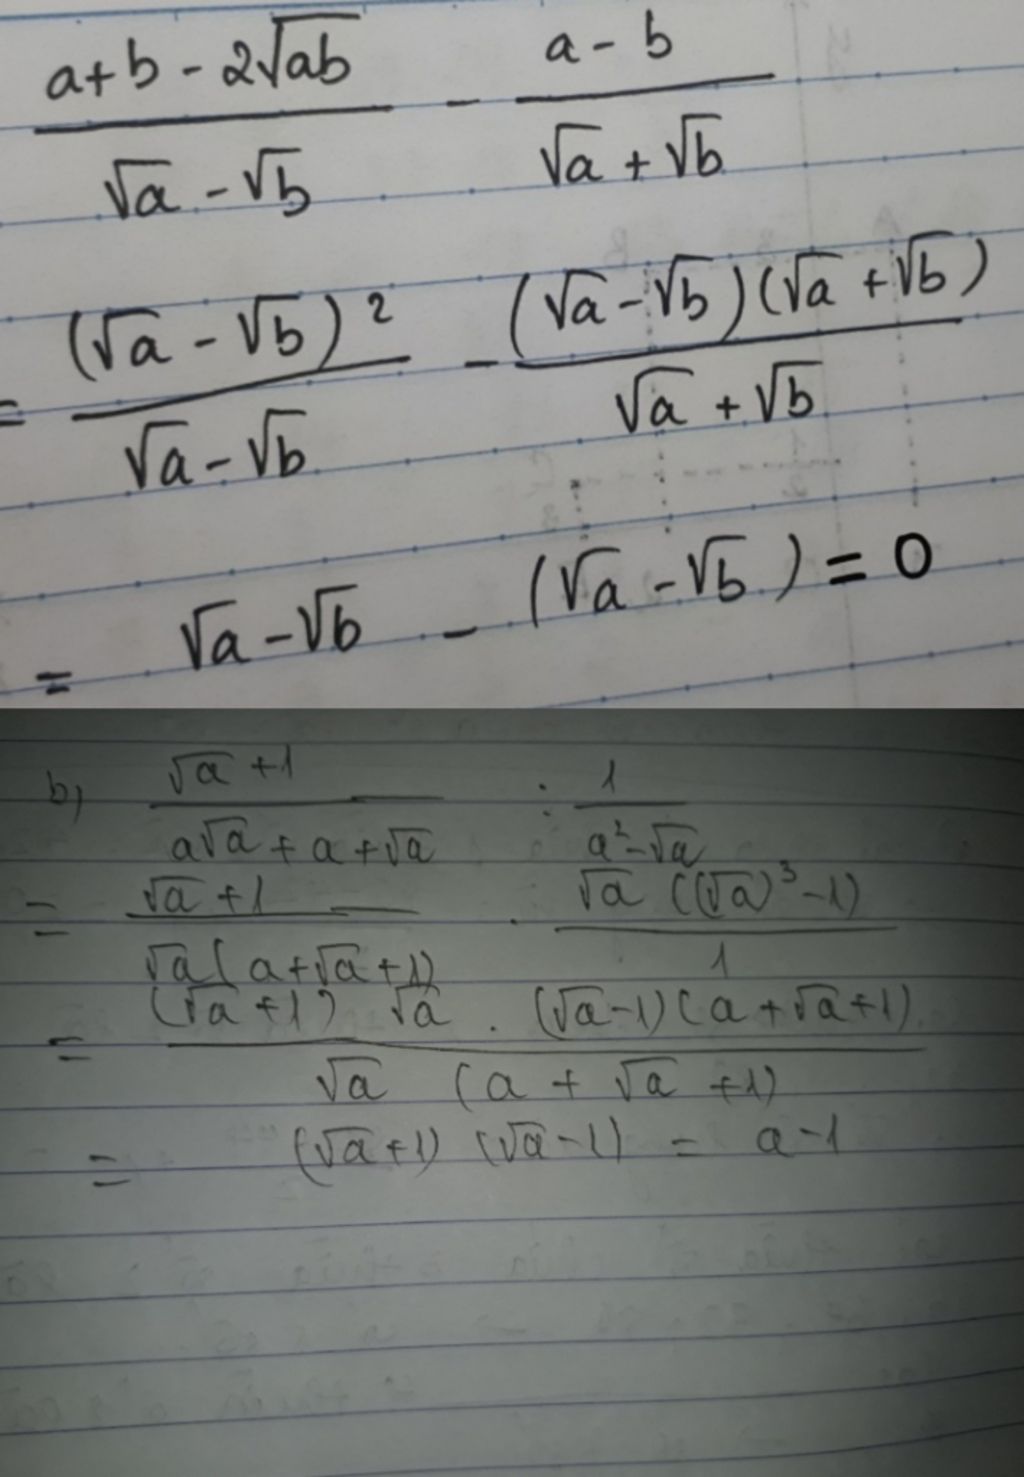 (a+b-2√ab)/(√a-√b) - (a-b)/(√a+√b)
= (√a-√b)²/(√a-√b) - (√a-√b)(√a+√b)/(√a+√b)
= √a-√b - (√a-√b) = 0
b, (√a+1)/(a√a+a+√a) : 1/(a²-√a)
= (√a+1)/(√a(a+√a+1)) . √a((√a)³-1)/1
= (√a+1) √a . (√a-1)(a+√a+1)/(√a (a+√a+1))
= (√a+1)(√a-1) = a-1